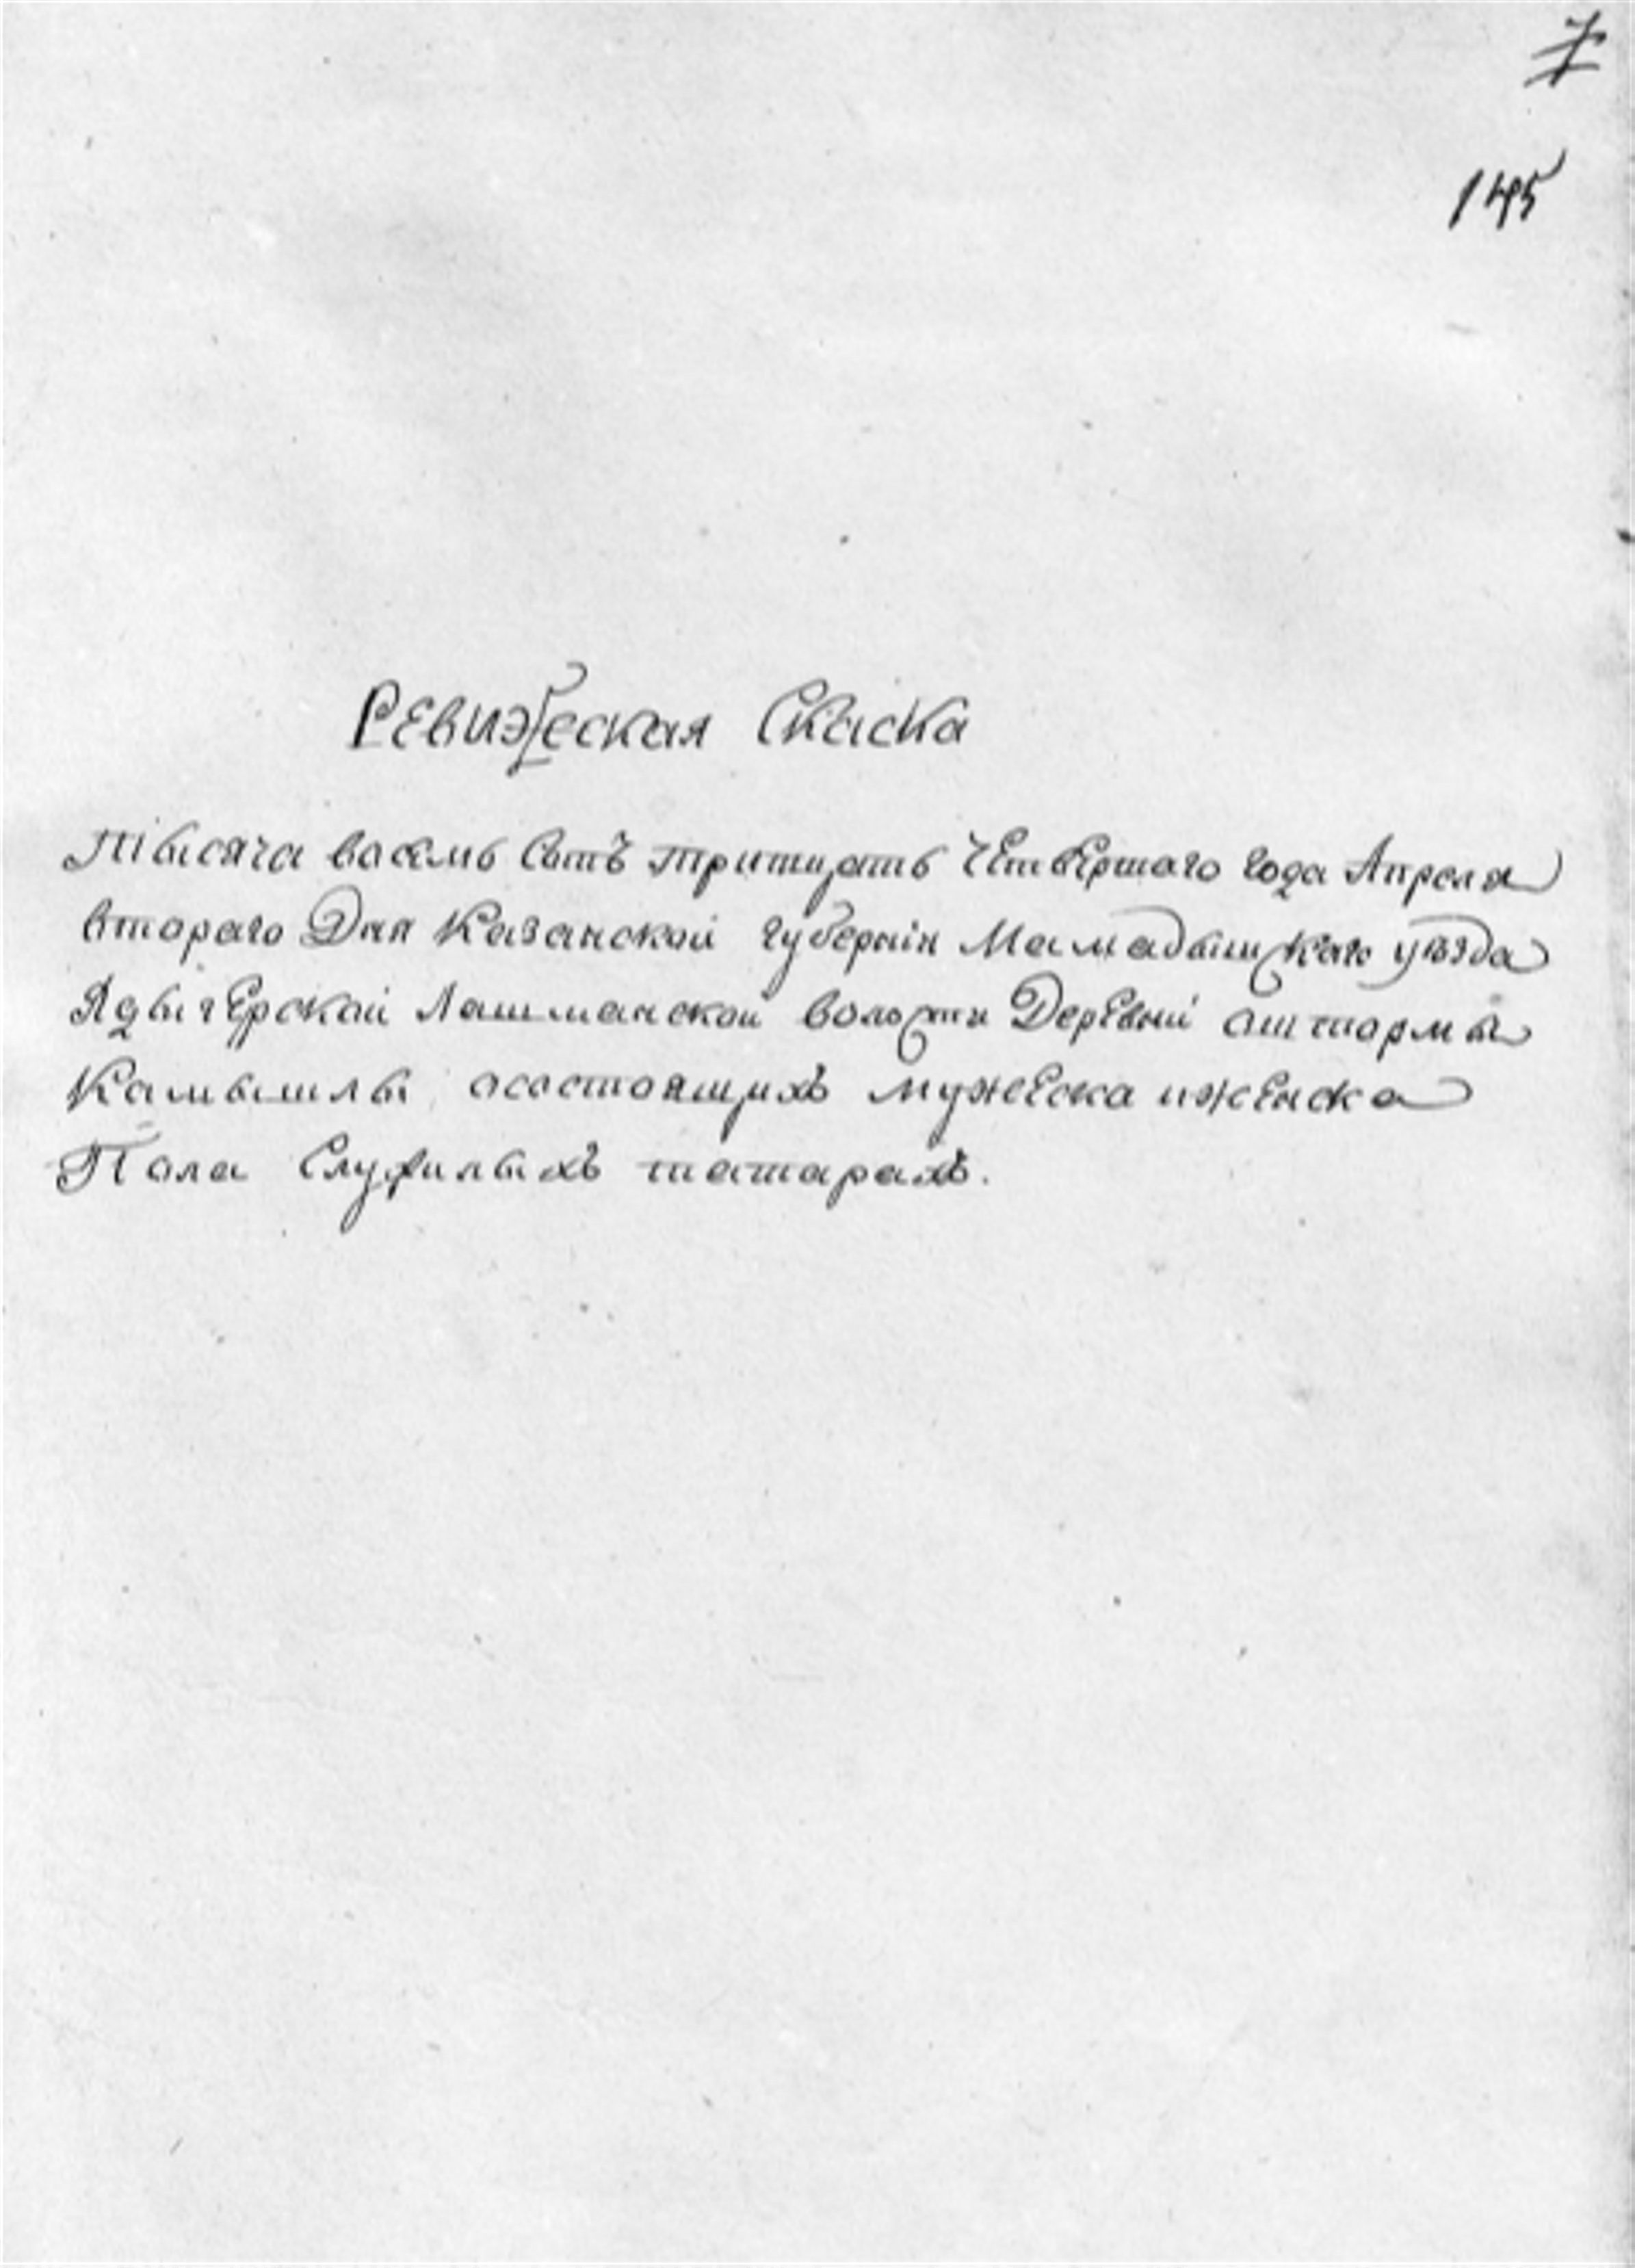 7
145
Ревизская Скаска
Тысяча восемь сотъ тритцать четвертаго года Апреля
втораго Дня Казанской губернiи Мамадышскаго уѣзда
Ядыгерской Лашманской волости Деревни аштормы
Камышлы осостоящихъ мужеска иженска
Пола Служилыхъ татарахъ.